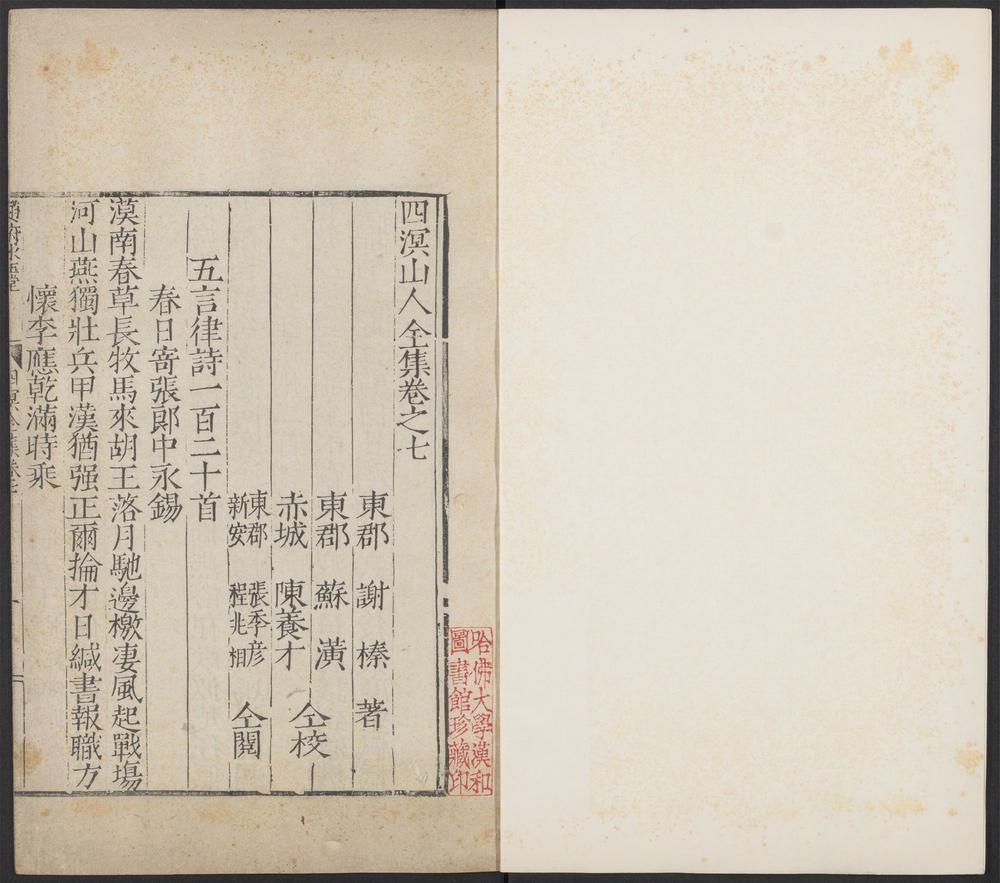 四溟山人全集卷之七
東郡 謝榛 著
東郡 蘇潢
赤城 陳養才 仝校
東郡 張季彦
新安 程兆相 仝閱
五言律詩一百二十首
春日寄張郎中永錫
漠南春草長牧馬來胡王落月馳邊檄凄風起戰塲
河山燕獨壯兵甲漢猶强正爾掄才日緘書報職方
懷李應乾滿時乘
趙府冰玉堂
四溟全集卷七
一
哈佛大學漢和
圖書館珍藏印